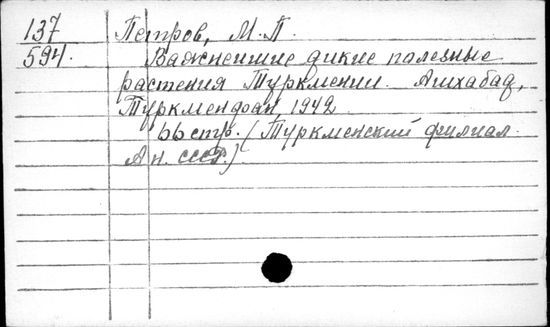 137 Петров, М.П.
594. Важнейшие дикие полезные
растения Туркмении. Ашхабад,
Туркменфан, 1942
66 стр. (Туркменский филиал
Ан. СССР.)